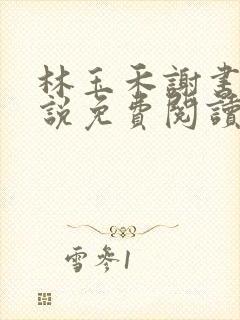 林玉禾謝書
說免費閱讀
雪參1